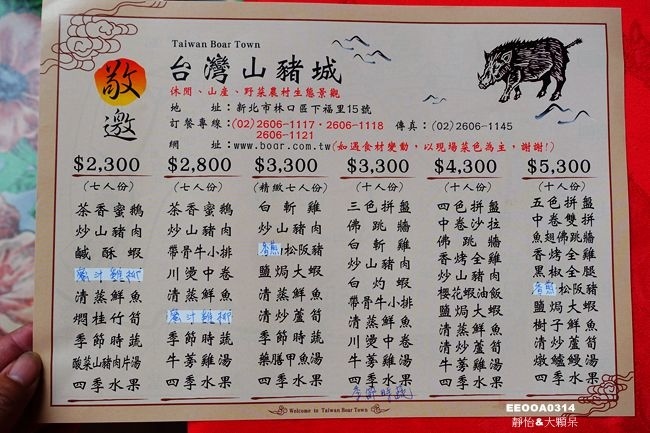 敬邀
Taiwan Boar Town
台灣山豬城
休閒、山產、野菜農村生態景觀
地 址：新北市林口區下福里15號
訂餐專線：(02)2606-1117・2606-1118 傳真：(02)2606-1145
2606-1121
網 址：www.boar.com.tw(如遇食材變動，以現場菜色為主，謝謝!)
$2,300
(七人份)
茶香蜜鵝
炒山豬肉
鹹酥蝦
蜜汁雞排
清蒸鮮魚
燜桂竹筍
季節時蔬
酸菜山豬肉片湯
四季水果
$2,800
(七人份)
茶香蜜鵝
炒山豬肉
帶骨牛小排
川燙中卷
清蒸鮮魚
蜜汁雞排
季節時蔬
牛蒡雞湯
四季水果
$3,300
(精緻七人份)
白斬雞
炒山豬肉
香煎松阪豬
鹽焗大蝦
清蒸鮮魚
清炒蘆筍
季節時蔬
藥膳甲魚湯
四季水果
$3,300
(十人份)
三色拼盤
佛跳牆
白斬雞
炒山豬肉
白灼蝦
帶骨牛小排
清蒸鮮魚
川燙中卷
牛蒡雞湯
四季水果
季節時蔬
$4,300
(十人份)
四色拼盤
中卷沙拉
佛跳牆
香烤全雞
炒山豬肉
櫻花蝦油飯
鹽焗大蝦
清蒸鮮魚
清炒蘆筍
牛蒡雞湯
四季水果
$5,300
(十人份)
五色拼盤
中卷雙拼
魚翅佛跳牆
香烤全雞
黑椒全腿
香煎松阪豬
鹽焗大蝦
樹子鮮魚
清炒蘆筍
燉鱸鰻湯
四季水果
Welcome to Taiwan Boar Town
EEOOA0314
靜怡&大顆呆